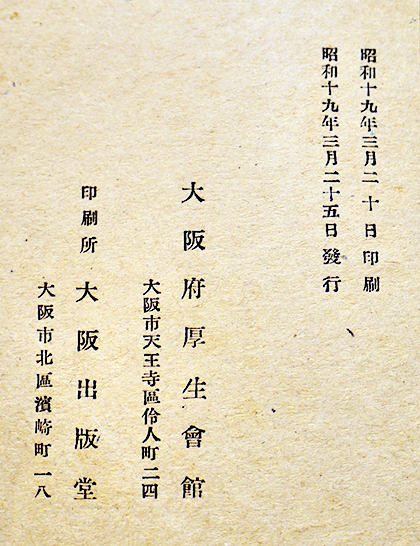 昭和十九年三月二十日印刷
昭和十九年三月二十五日發行
大阪府厚生會館
大阪市天王寺區伶人町二四
印刷所 大阪出版堂
大阪市北區濱崎町一八